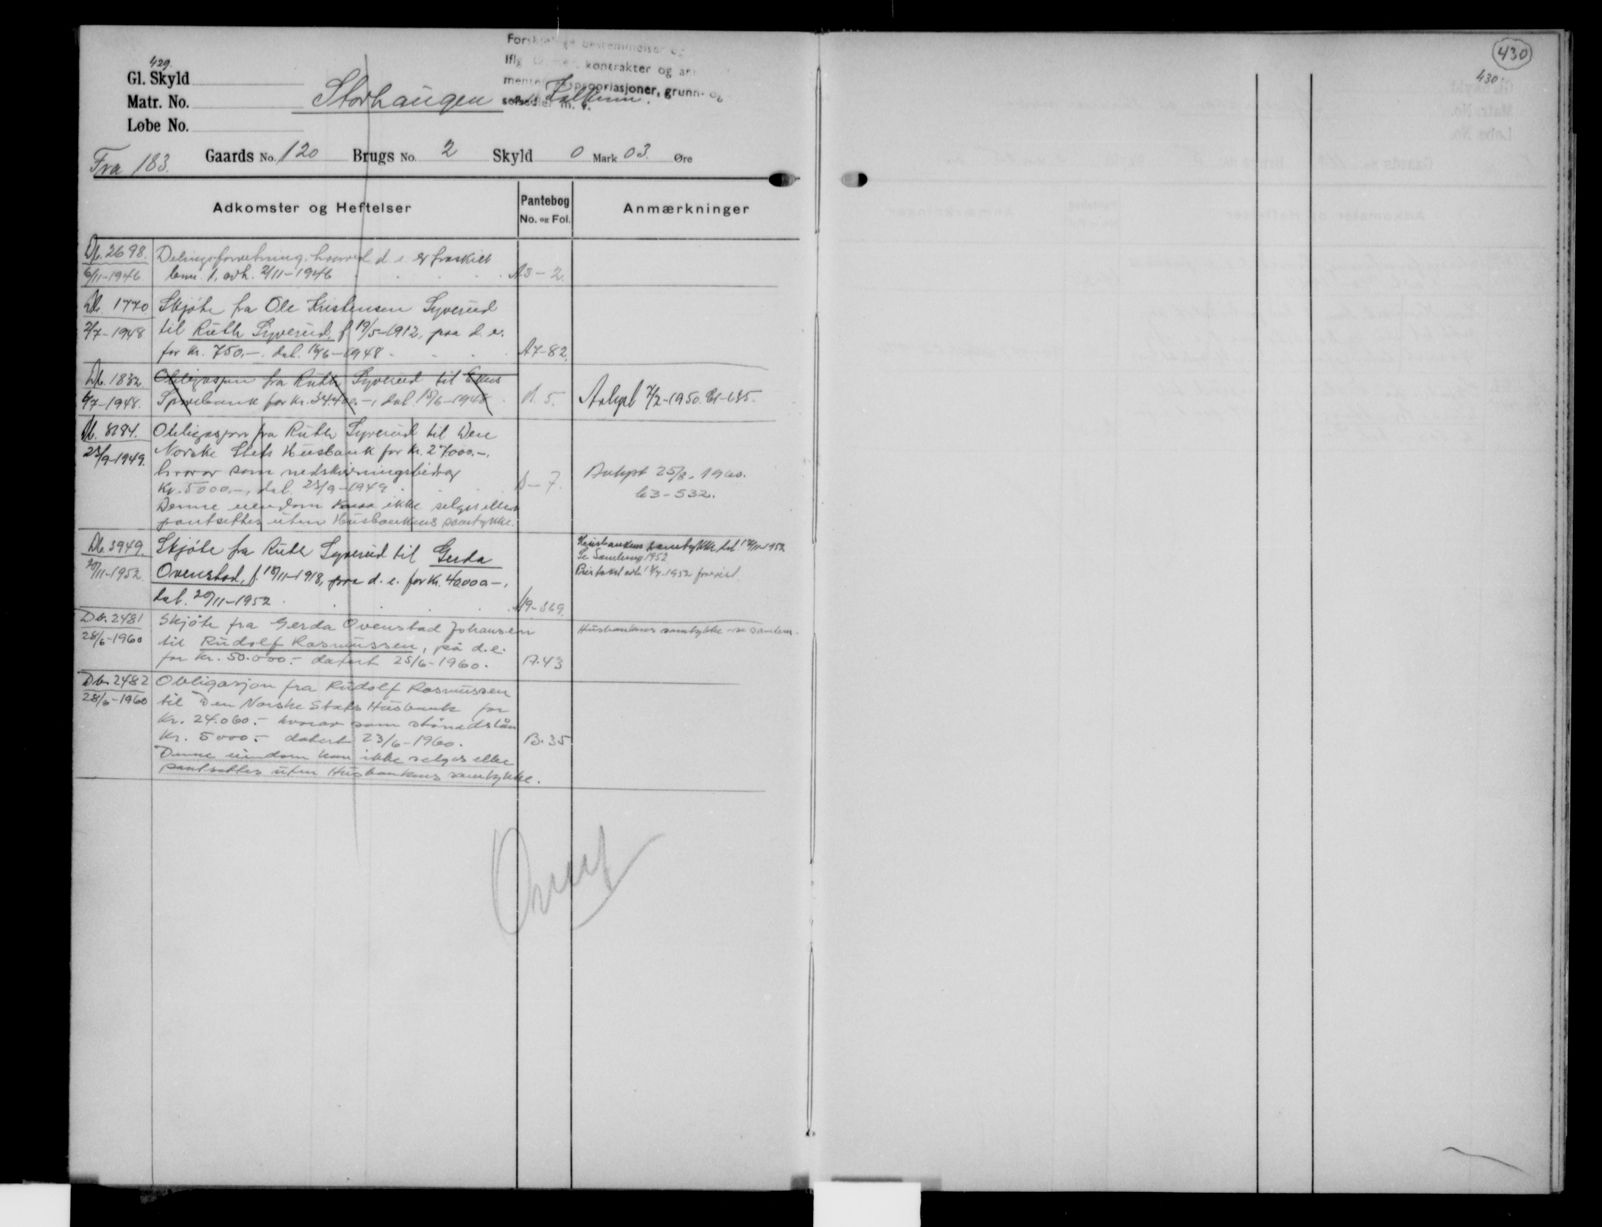 429.
Gl. Skyld
Matr. No.
Løbe No.
Storhaugen
Forskjellige bestemmelser
kontrakter og
ekspropriasjoner, grunn- og
m. v.
Fra 183.
Gaards No. 120 Brugs No. 2 Skyld 0 Mark 03 Øre
Adkomster og Heftelser
Pantebog
No. og Fol.
Anmærkninger
Db. 2698.
6/11-1946
Delingsforretning, hvorved d. e. er fraskilt
bnr. 1, avh. 2/11-1946
A3-2
Db. 1770
2/7-1948
Skjøte fra Ole Kristensen Lyverud
til Ruth Lyverud, f. 19/5-1912, paa d. e.
for kr. 750.-. dat. 19/6-1948.
A7-82.
Db. 1832
6/7-1948.
Obligasjon fra Ruth Lyverud til
Sparebank for kr. 34.400.-, dat 18/6-1948
B. 5.
Avlyst 7/2-1950.
23/9-1949.
Obligasjon fra Ruth Lyverud til Den
Norske Stats Husbank for kr. 27000.-,
hvorav som nedskrivningsbidrag
kr. 5000.-, dat. 23/9-1949
Denne eiendom kan ikke selges eller
pantsettes uten Husbankens samtykke.
B-7.
Avlyst 25/8-1960.
63-532.
Db. 3949.
20/11-1952.
Skjøte fra Ruth Lyverud til Gerda
Ovenstad, f. 18/11-1918, paa d. e. for kr. 40000.-,
dat. 20/11-1952
A9-369.
Husbankens samtykke dat 1952
Se Samling 1952
1952
Db. 2481
28/6-1960
Skjøte fra Gerda Ovenstad Johansen
til Rudolf Rasmussen, på d.e.
for kr. 50.000.- datert 25/6-1960.
A.43
Husbankens samtykke
Db 2482
28/6-1960
Obligasjon fra Rudolf Rasmussen
til Den Norske Stats Husbank for
kr. 24.060.- hvorav som stønadslån
kr. 5000.- datert 23/6-1960.
Denne eiendom kan ikke selges eller
pantsettes uten Husbankens samtykke.
B.35
430
430